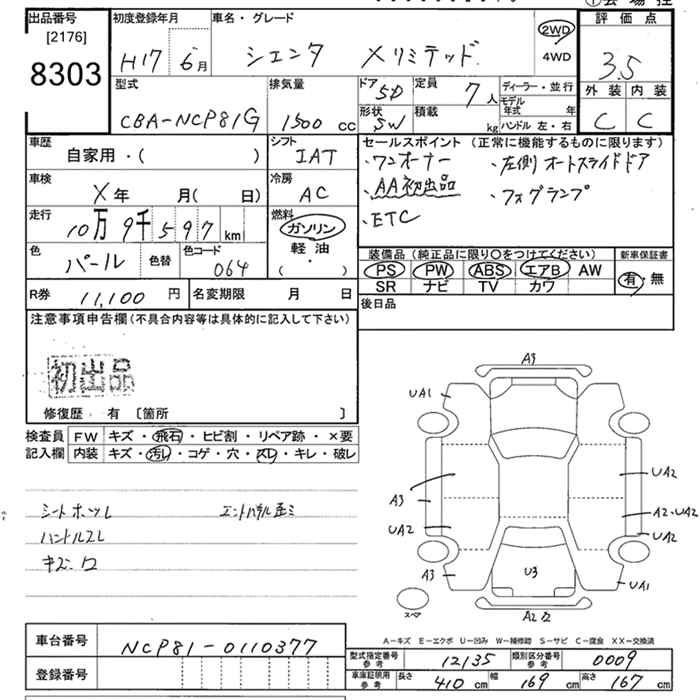 ①会場控
出品番号
[2176]
8303
初度登録年月
H17 6月
車名・グレード
シエンタ Xリミテッド
2WD
4WD
評価点
3.5
外装 内装
C C
型式
CBA-NCP81G
排気量
1500 CC
ドア 5D
形状 SW
定員 7人
積載 kg
ディーラー・並行
モデル年式 年
ハンドル 左・右
車歴
自家用・( )
シフト
IAT
車検
X年 月( 日)
冷房
AC
走行
10万9千597km
燃料
ガソリン
軽油
( ・ )
色
パール
色替
色コード
064
セールスポイント (正常に機能するものに限ります)
・ワンオーナー ・左側オートスライドドア
・AA初出品 ・フォグランプ
・ETC
装備品 (純正品に限り〇をつけてください)
PS PW ABS エアB AW
SR ナビ TV カワ
新車保証書
有・無
後日品
R券 11,100円
名変期限 月 日
注意事項申告欄 (不具合内容等は具体的に記入して下さい)
初出品
修復歴・有 〔箇所 〕
検査員記入欄
FW キズ・飛石・ヒビ割・リペア跡・×要
内装 キズ・汚レ・コゲ・穴・スレ・キレ・破レ
シートホツレ
ハンドルスレ
A9
UA1
A3
UA2
A3
UA2
A2・UA2
UA2
UA1
U3
A2
スペア
A-キズ E-エクボ U-凹み W-補修跡 S-サビ C-腐食 XX-交換済
車台番号
NCP81-0110377
登録番号
型式指定番号 参考 12135
類別区分番号 参考 0009
車庫証明用 参考 長さ 410cm 幅 169cm 高さ 167cm